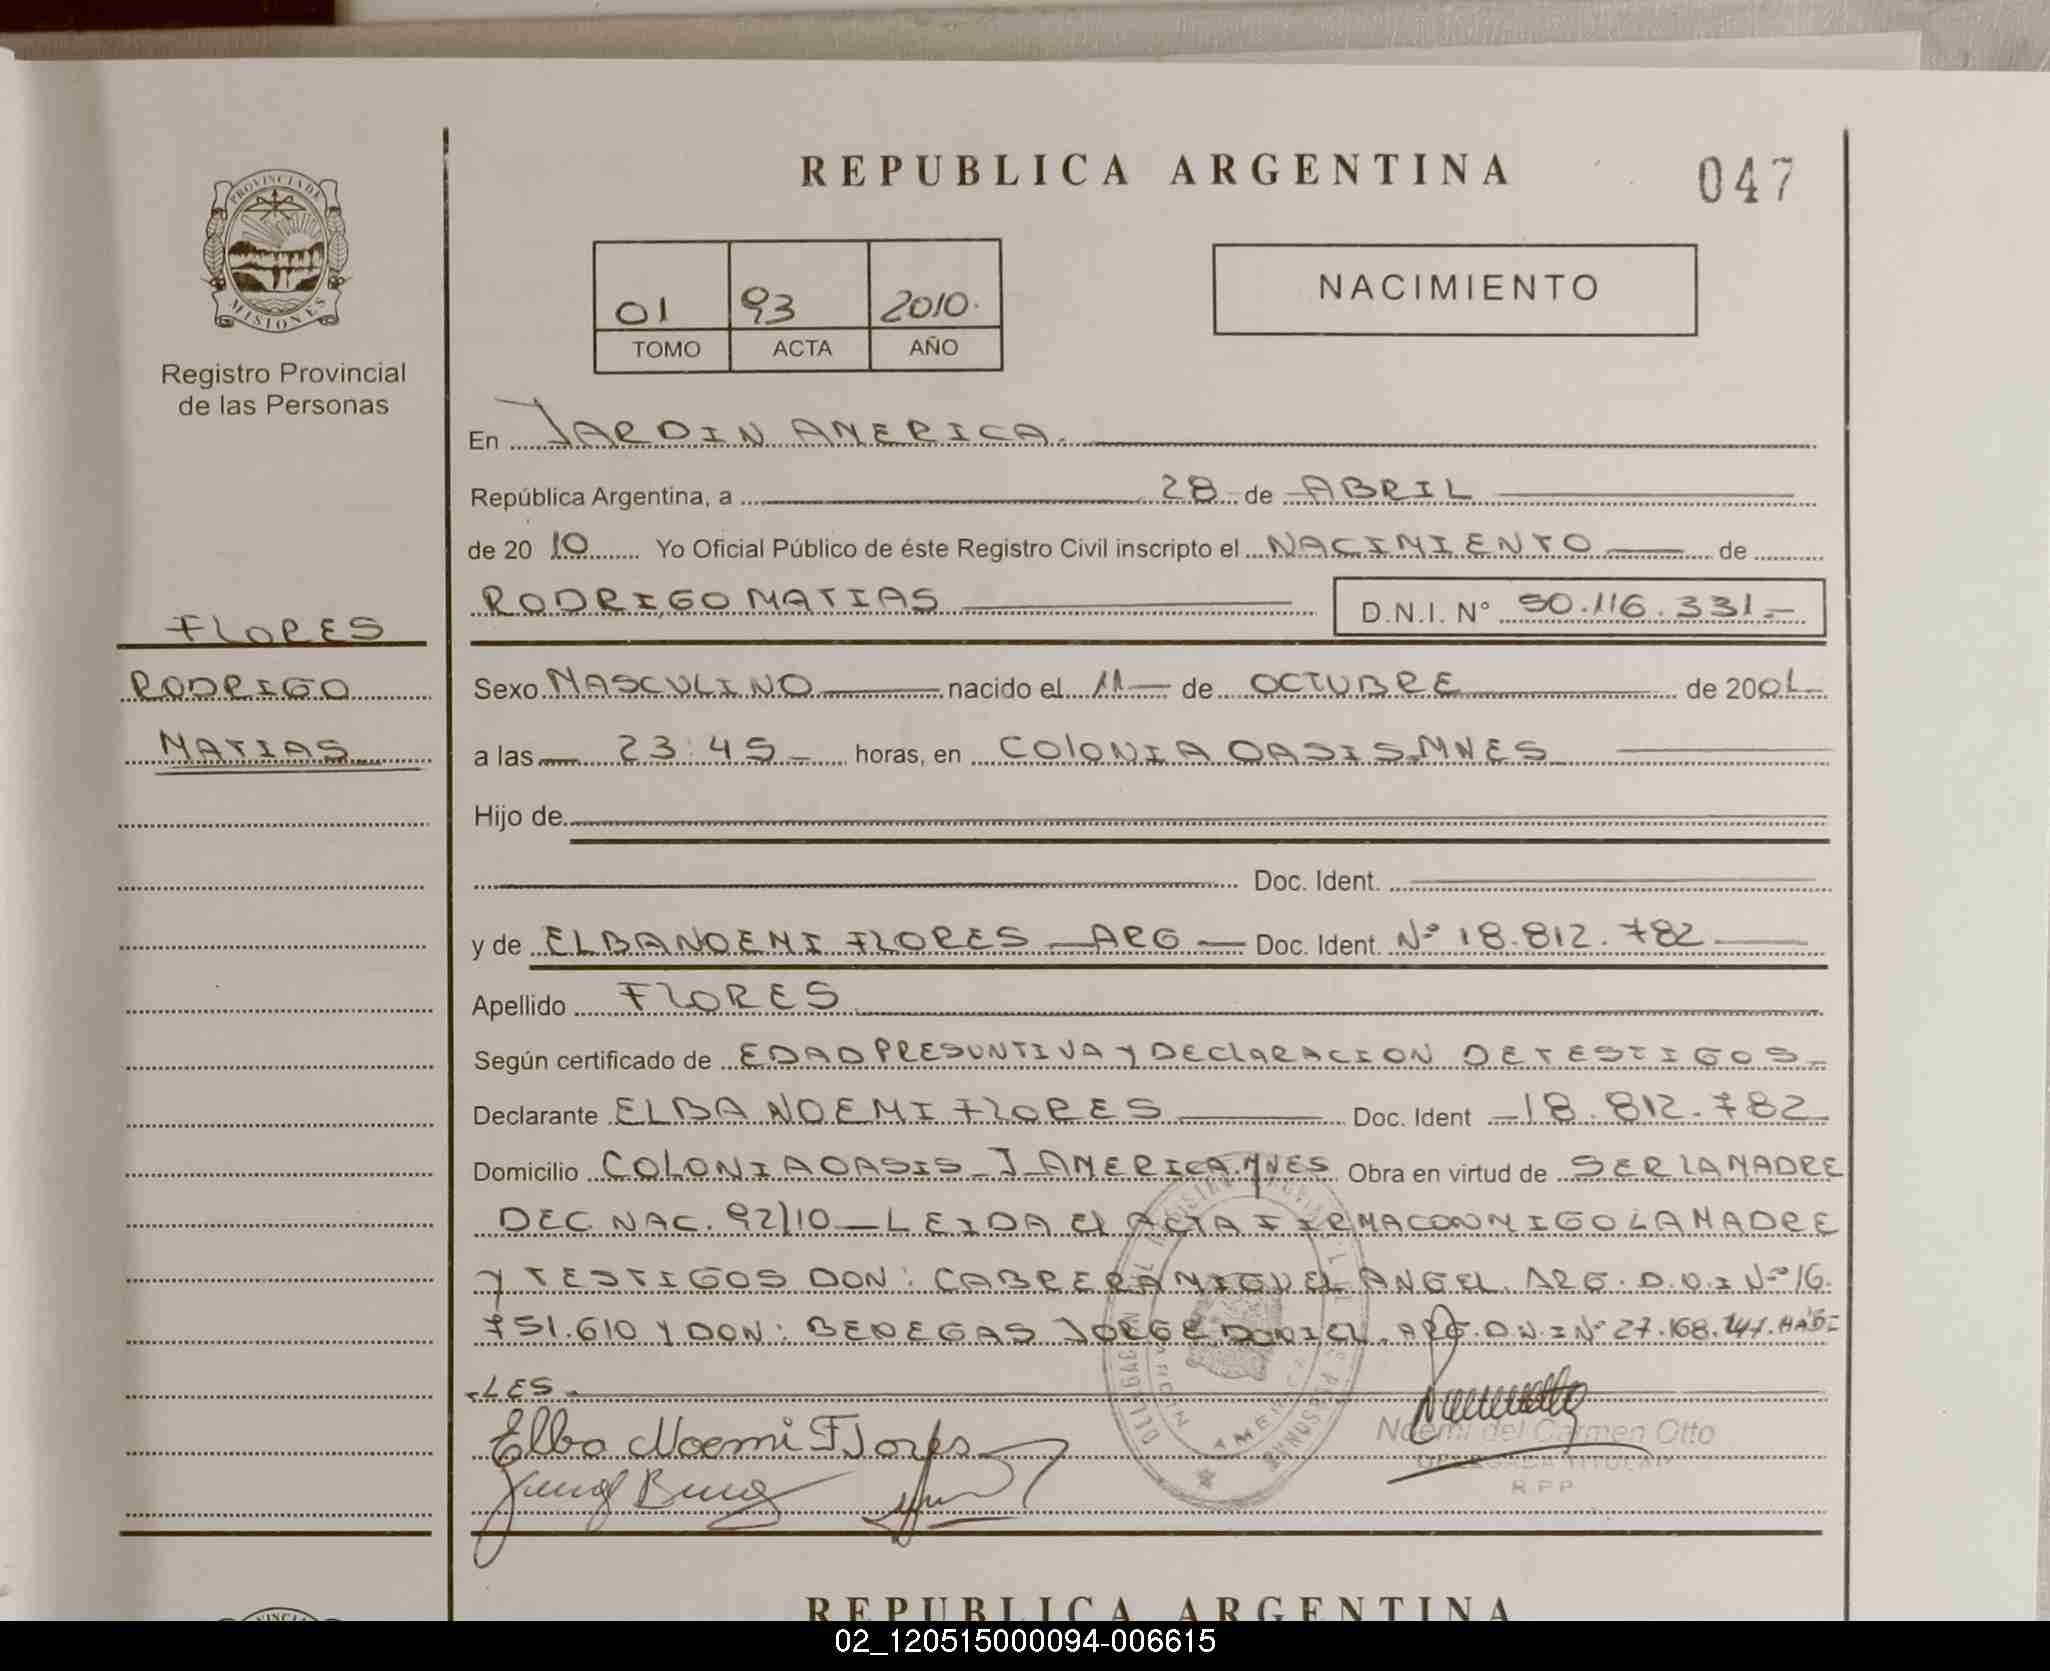 REPUBLICA ARGENTINA
047
PROVINCIA DE
MISIONES
Registro Provincial
de las Personas
01 93 2010.
TOMO ACTA AÑO
NACIMIENTO
En JARDIN AMERICA.
República Argentina, a 28 de ABRIL
de 20 10 Yo Oficial Público de éste Registro Civil inscripto el NACIMIENTO de
RODRIGO MATIAS D.N.I. N° 50.116.331.-
FLORES
RODRIGO
MATIAS
Sexo MASCULINO nacido el 11 de OCTUBRE de 2001
a las 23:45 horas, en COLONIA OASIS MNES
Hijo de
Doc. Ident.
y de ELBA NOEMI FLORES - ARG - Doc. Ident. Nº 18.812.782
Apellido FLORES
Según certificado de EDAD PRESUNTIVA Y DECLARACION DE TESTIGOS-
Declarante ELBA NOEMI FLORES Doc. Ident 18.812.782
Domicilio COLONIA OASIS - J. AMERICA. MNES Obra en virtud de SER LA MADRE
DEC. NAC. 92/10 - LEIDA El ACTA FIRMA CONMIGO LA MADRE
Y TESTIGOS DON: CABRERA MIGUEL ANGEL. ARG. D.N.I Nº 16.
751.610 Y DON: BENEGAS JORGE DANIEL. ARG. D.N.I Nº 27.168.141. HABI
-LES-
Elba Noemi Flores
Noemi del Carmen Otto
DELEGADA TITULAR
R P P
REPUBLICA ARGENTINA
02_120515000094-006615